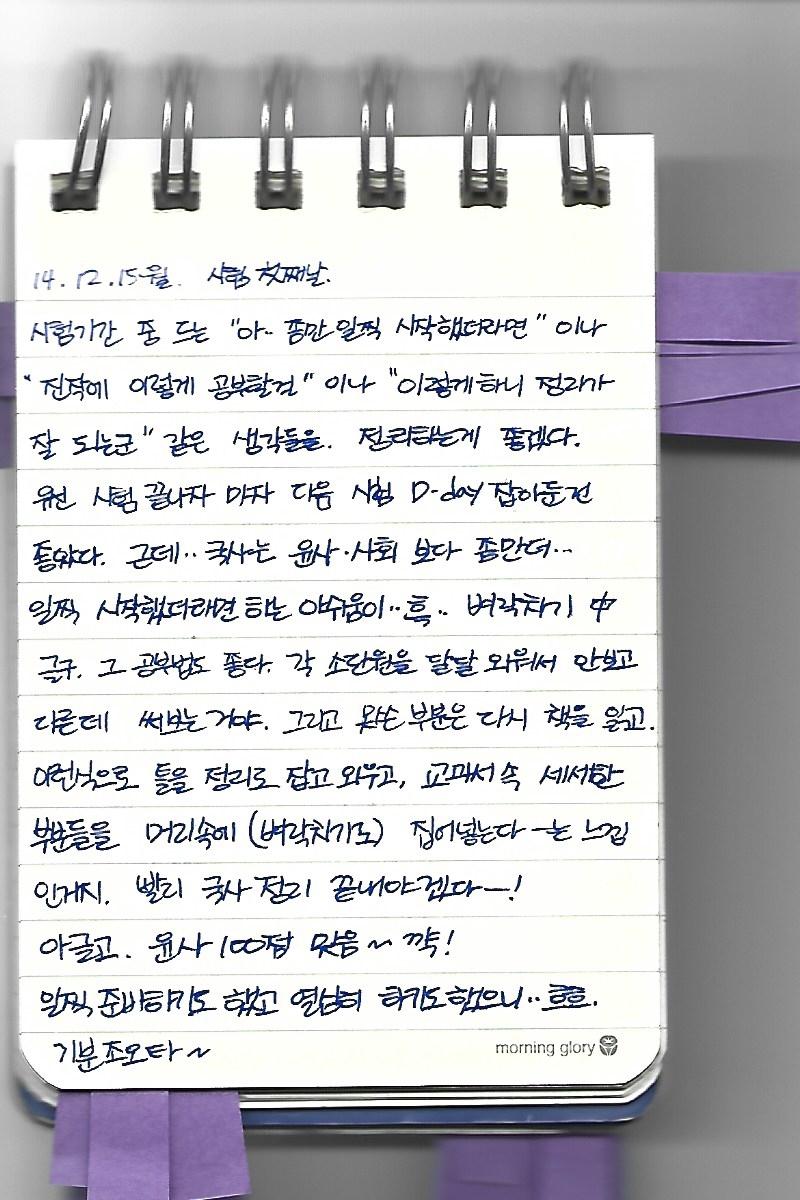 14.12.15.월. 시험 첫째날.
시험기간 중 드는 "아.. 좀만 일찍 시작했더라면" 이나
"진작에 이렇게 공부할걸" 이나 "이렇게 하니 정리가
잘 되는군" 같은 생각들을. 정리하는게 좋겠다.
우선 시험 끝나자 마자 다음 시험 D-day 잡아둔건
좋았다. 근데.. 국사는 윤사·사회 보다 좀만더...
일찍 시작했더라면 하는 아쉬움이..흑.. 벼락치기 中
글구. 그 공부법도 좋다. 각 소단원을 달달 외워서 안보고
다른데 써보는거야. 그리고 못쓴 부분은 다시 책을 읽고.
이런식으로 틀을 정리로 잡고 외우고, 교과서 속 세세한
부분들을 머리속에 (벼락치기로) 집어넣는다 —는 느낌
인거지. 빨리 국사 정리 끝내야겠다—!
아글고. 윤사 100점 맞음~ 꺅!
일찍 준비하기도 했고 열심히 하기도했으니..흐흐.
기분 조오타~
morning glory